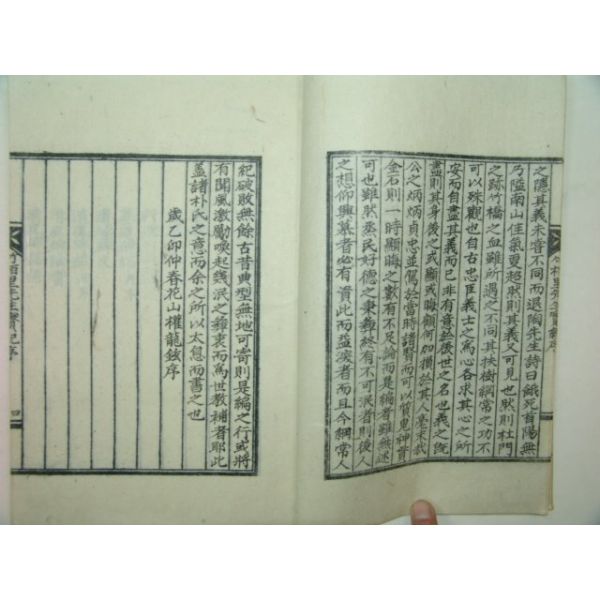 之隱其義未嘗不同而退陶先生詩曰餓死首陽無
乃隘南山佳氣更超然則其義又可見也然則杜門
之跡竹橋之血雖所遇之不同其扶樹綱常之功不
可以殊觀也自古忠臣義士之寫心各求其心之所
安而自盡其義而已非有意於後世之名也義之旣
盡則其身後之或顯或晦顧何加損於其人
公之炳炳貞忠並駕於當時諸賢而可以質鬼神貫
金石則一時顯晦之數有不足論而是編者雖無述
可也雖然烝民好德之秉彝終有不可泯者則後人
之想仰興慕者必有資此而益深者而且今綱常人
紀破敗無餘古昔典型無地可寄則是編之行或將
有聞風激勵喚起幾泯之彝衷而爲世敎補者耶此
蓋諸朴氏之意而余之所以太息而書之也
歲乙卯仲春花山權龍鉉序
先生實記序
四